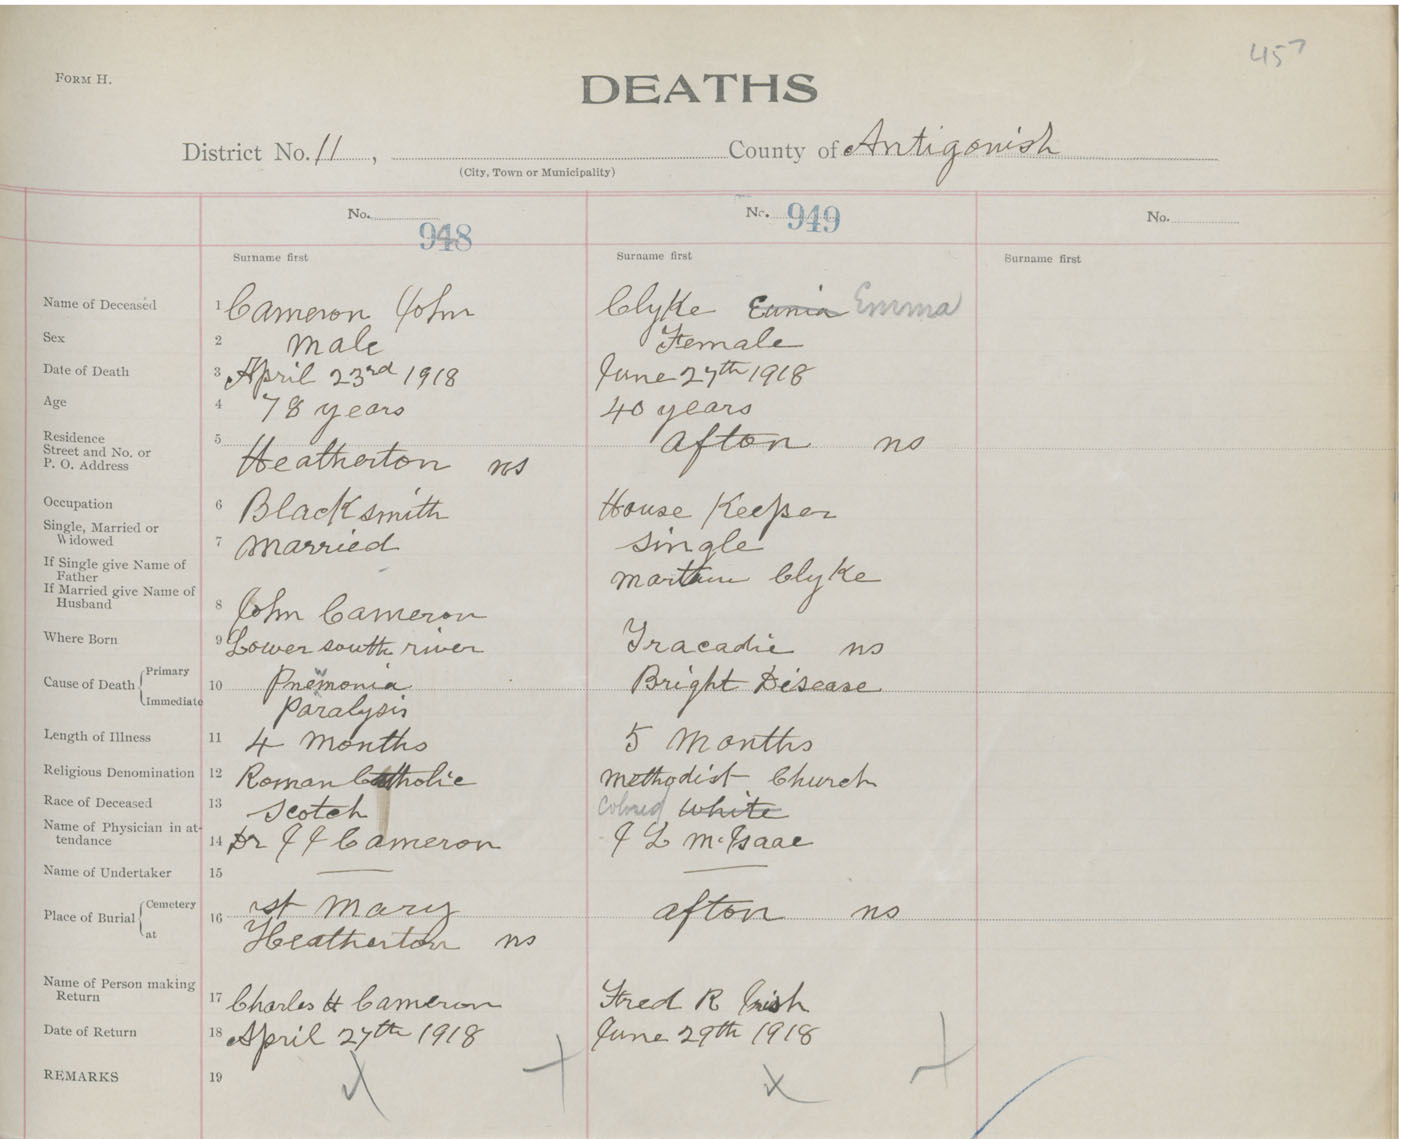 457
FORM H.
DEATHS
District No. 11, County of Antigonish
(City, Town or Municipality)
No. 948 No. 949 No.
Surname first Surname first Surname first
Name of Deceased 1 Cameron John Clyke Eunia Emma
Sex 2 Male Female
Date of Death 3 April 23rd 1918 June 27th 1918
Age 4 78 years 40 years
Residence Street and No. or P. O. Address 5 Heatherton ns afton ns
Occupation 6 Blacksmith House Keeper
Single, Married or Widowed 7 Married Single
If Single give Name of Father Clyke
If Married give Name of Husband 8 John Cameron
Where Born 9 Lower south river Tracadie ns
Cause of Death Primary 10 Pnemonia Bright Disease
Immediate Paralysis
Length of Illness 11 4 Months 5 Months
Religious Denomination 12 Roman Catholic Methodist Church
Race of Deceased 13 Scotch Colored White
Name of Physician in attendance 14 Dr J J Cameron J L McIsaac
Name of Undertaker 15
Place of Burial Cemetery 16 st Mary afton ns
at Heatherton ns
Name of Person making Return 17 Charles H Cameron Fred R Irish
Date of Return 18 April 27th 1918 June 29th 1918
REMARKS 19